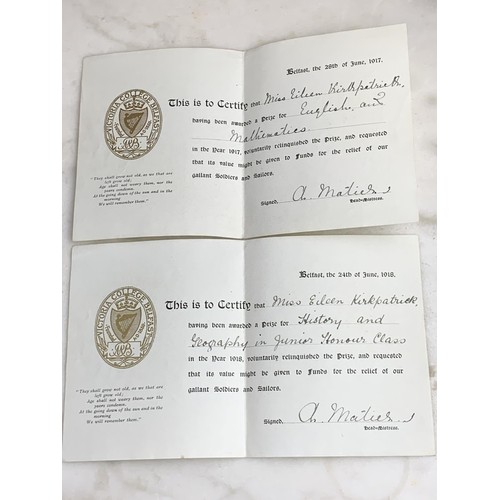 Belfast, the 28th of June, 1917.
This is to Certify that Miss Eileen Kirkpatrick,
having been awarded a Prize for English, and
Mathematics.
in the Year 1917, voluntarily relinquished the Prize, and requested
that its value might be given to Funds for the relief of our
gallant Soldiers and Sailors.
Signed,
Head=Mistress.
VICTORIA COLLEGE BELFAST
"They shall grow not old, as we that are
left grow old;
Age shall not weary them, nor the
years condemn.
At the going down of the sun and in the
morning
We will remember them."
Belfast, the 24th of June, 1918.
This is to Certify that Miss Eileen Kirkpatrick,
having been awarded a Prize for History and
Geography in Junior Honour Class
in the Year 1918, voluntarily relinquished the Prize, and requested
that its value might be given to Funds for the relief of our
gallant Soldiers and Sailors.
Signed,
Head=Mistress.
VICTORIA COLLEGE BELFAST
"They shall grow not old, as we that are
left grow old;
Age shall not weary them, nor the
years condemn.
At the going down of the sun and in
the morning
We will remember them."